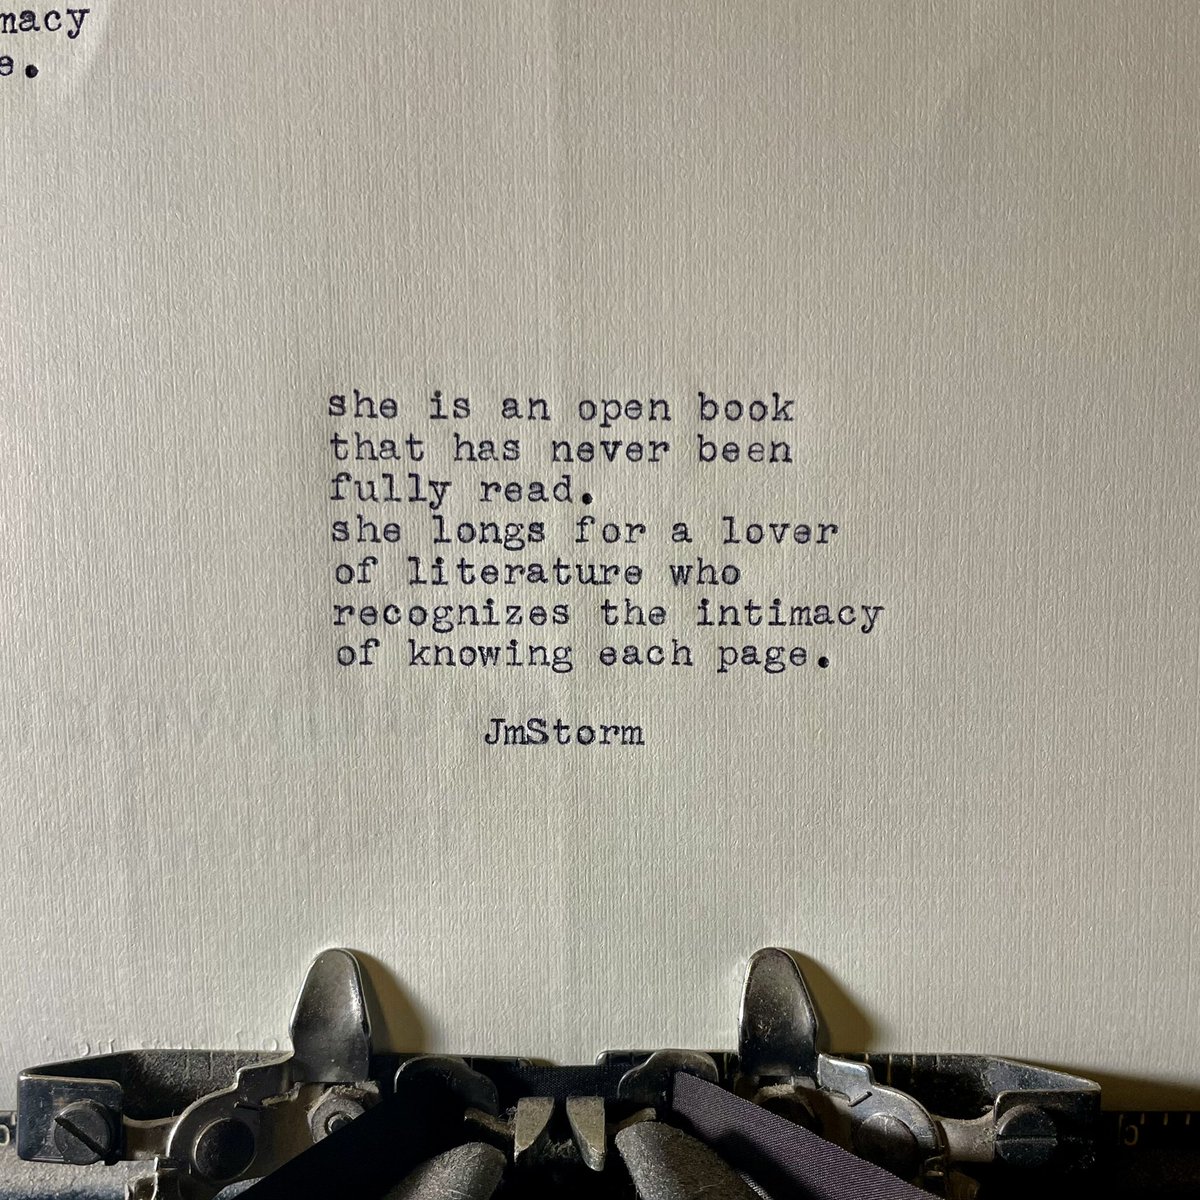 macy
e.
she is an open book
that has never been
fully read.
she longs for a lover
of literature who
recognizes the intimacy
of knowing each page.
JmStorm